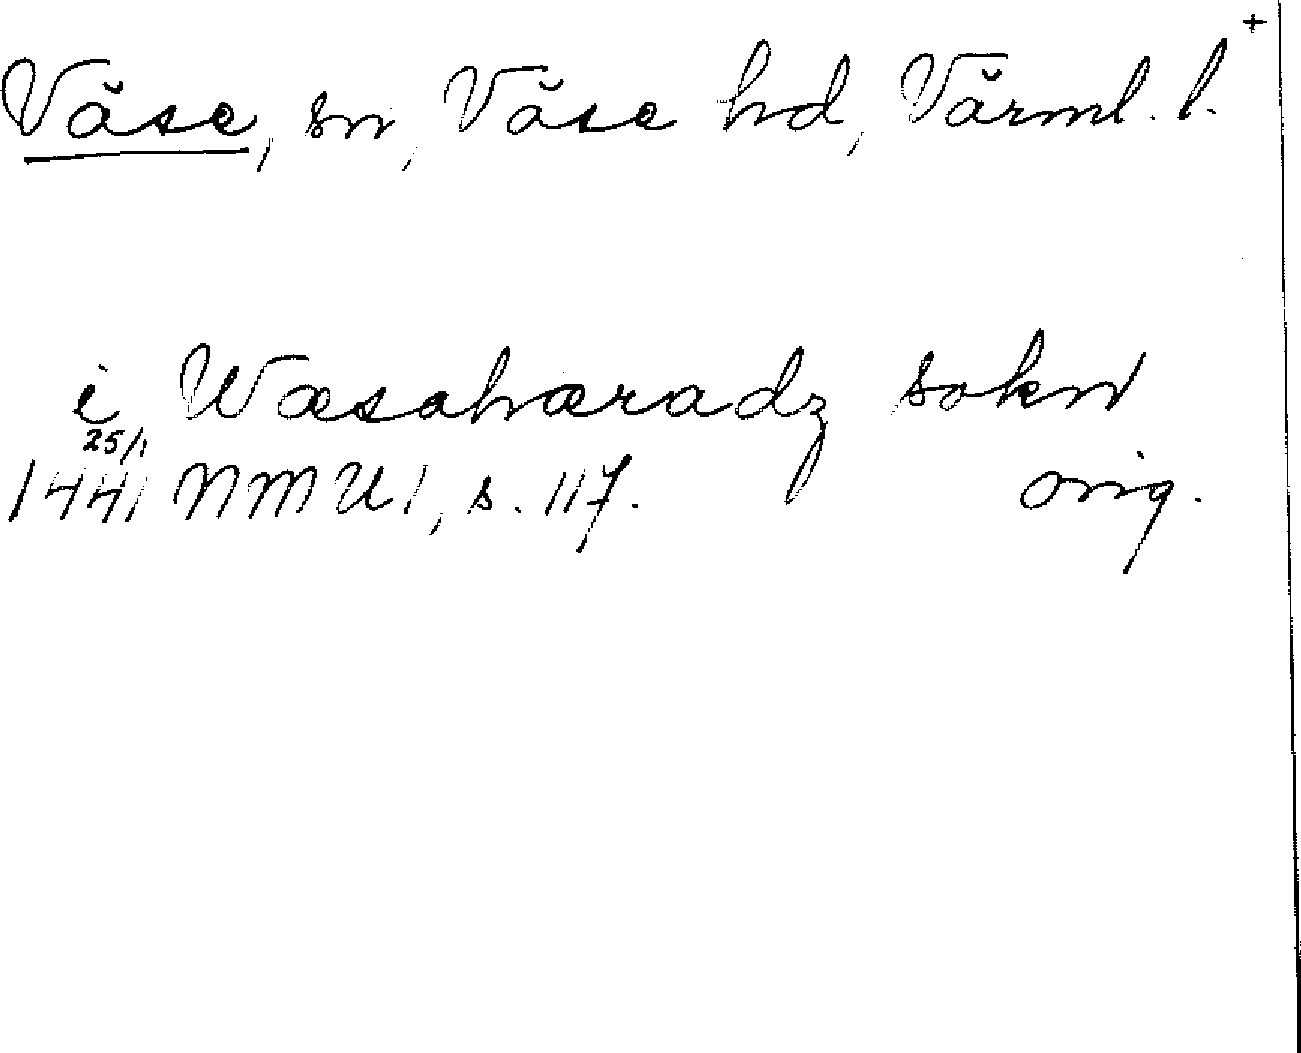 +
Väse, sn, Väse hd, Värml. l.
i Wæsahæradz sokn
25/1
1441 NMU 1, s. 117. orig.